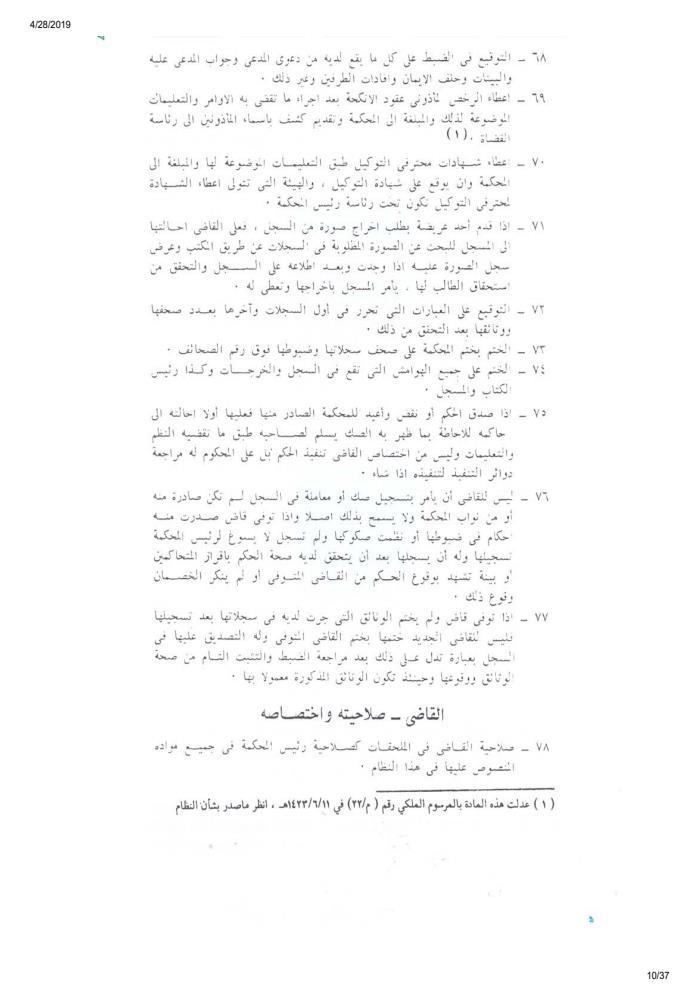 4/28/2019
٦٨ ـ التوقيع فى الضبط على كل ما يقع لديه من دعوى المدعى وجواب المدعى عليه
والبينات وحلف الايمان وافادات الطرفين وغير ذلك ٠
٦٩ ـ اعطاء الرخص لمأذونى عقود الانكحة بعد اجراء ما تقضى به الاوامر والتعليمات
الموضوعة لذلك والمبلغة الى المحكمة وتقديم كشف باسماء المأذونين الى رئاسة
القضاة ٠(١)
٧٠ ـ اعطاء شهادات محترفى التوكيل طبق التعليمات الموضوعة لها والمبلغة الى
المحكمة وان يوقع على شهادة التوكيل ، والهيئة التى تتولى اعطاء الشهادة
لمحترفى التوكيل تكون تحت رئاسة رئيس المحكمة ٠
٧١ ـ اذا قدم أحد عريضة بطلب اخراج صورة من السجل ، فعلى القاضى احالتها
الى المسجل للبحث عن الصورة المطلوبة فى السجلات عن طريق المكتب وعرض
سجل الصورة عليه اذا وجدت وبعد اطلاعه على السجل والتحقق من
استحقاق الطالب لها ، يأمر المسجل باخراجها وتعطى له ٠
٧٢ ـ التوقيع على العبارات التى تحرر فى أول السجلات وآخرها بعدد صحفها
ووثائقها بعد التحقق من ذلك ٠
٧٣ ـ الختم بختم المحكمة على صحف سجلاتها وضبوطها فوق رقم الصحائف ٠
٧٤ ـ الختم على جميع الهوامش التى تقع فى السجل والخرجات وكذا رئيس
الكتاب والمسجل ٠
٧٥ ـ اذا صدق الحكم أو نقض وأعيد للمحكمة الصادر منها فعليها أولا احالته الى
حاكمه للاحاطة بما ظهر به الصك يسلم لصاحبه طبق ما تقضيه النظم
والتعليمات وليس من اختصاص القاضى تنفيذ الحكم بل على المحكوم له مراجعة
دوائر التنفيذ لتنفيذه اذا شاء ٠
٧٦ ـ ليس للقاضى أن يأمر بتسجيل صك أو معاملة فى السجل لم تكن صادرة منه
أو من نواب المحكمة ولا يسمح بذلك اصلا واذا توفى قاض صدرت منه
احكام فى ضبوطها أو نظمت صكوكها ولم تسجل لا يسوغ لرئيس المحكمة
تسجيلها وله أن يسجلها بعد أن يتحقق لديه صحة الحكم باقرار المتحاكمين
أو بينة تشهد بوقوع الحكم من القاضى المتوفى أو لم ينكر الخصمان
وقوع ذلك ٠
٧٧ ـ اذا توفى قاض ولم يختم الوثائق التى جرت لديه فى سجلاتها بعد تسجيلها
فليس للقاضى الجديد ختمها بختم القاضى المتوفى وله التصديق عليها فى
السجل بعبارة تدل على ذلك بعد مراجعة الضبط والتثبت التام من صحة
الوثائق ووقوعها وحينئذ تكون الوثائق المذكورة معمولا بها ٠
القاضى ـ صلاحيته واختصاصه
٧٨ ـ صلاحية القاضى فى الملحقات كصلاحية رئيس المحكمة فى جميع مواده
المنصوص عليها فى هذا النظام ٠
( ١ ) عدلت هذه المادة بالمرسوم الملكي رقم ( م/٢٢) في ١٤٢٣/٦/١١هـ ، انظر ماصدر بشأن النظام
10/37